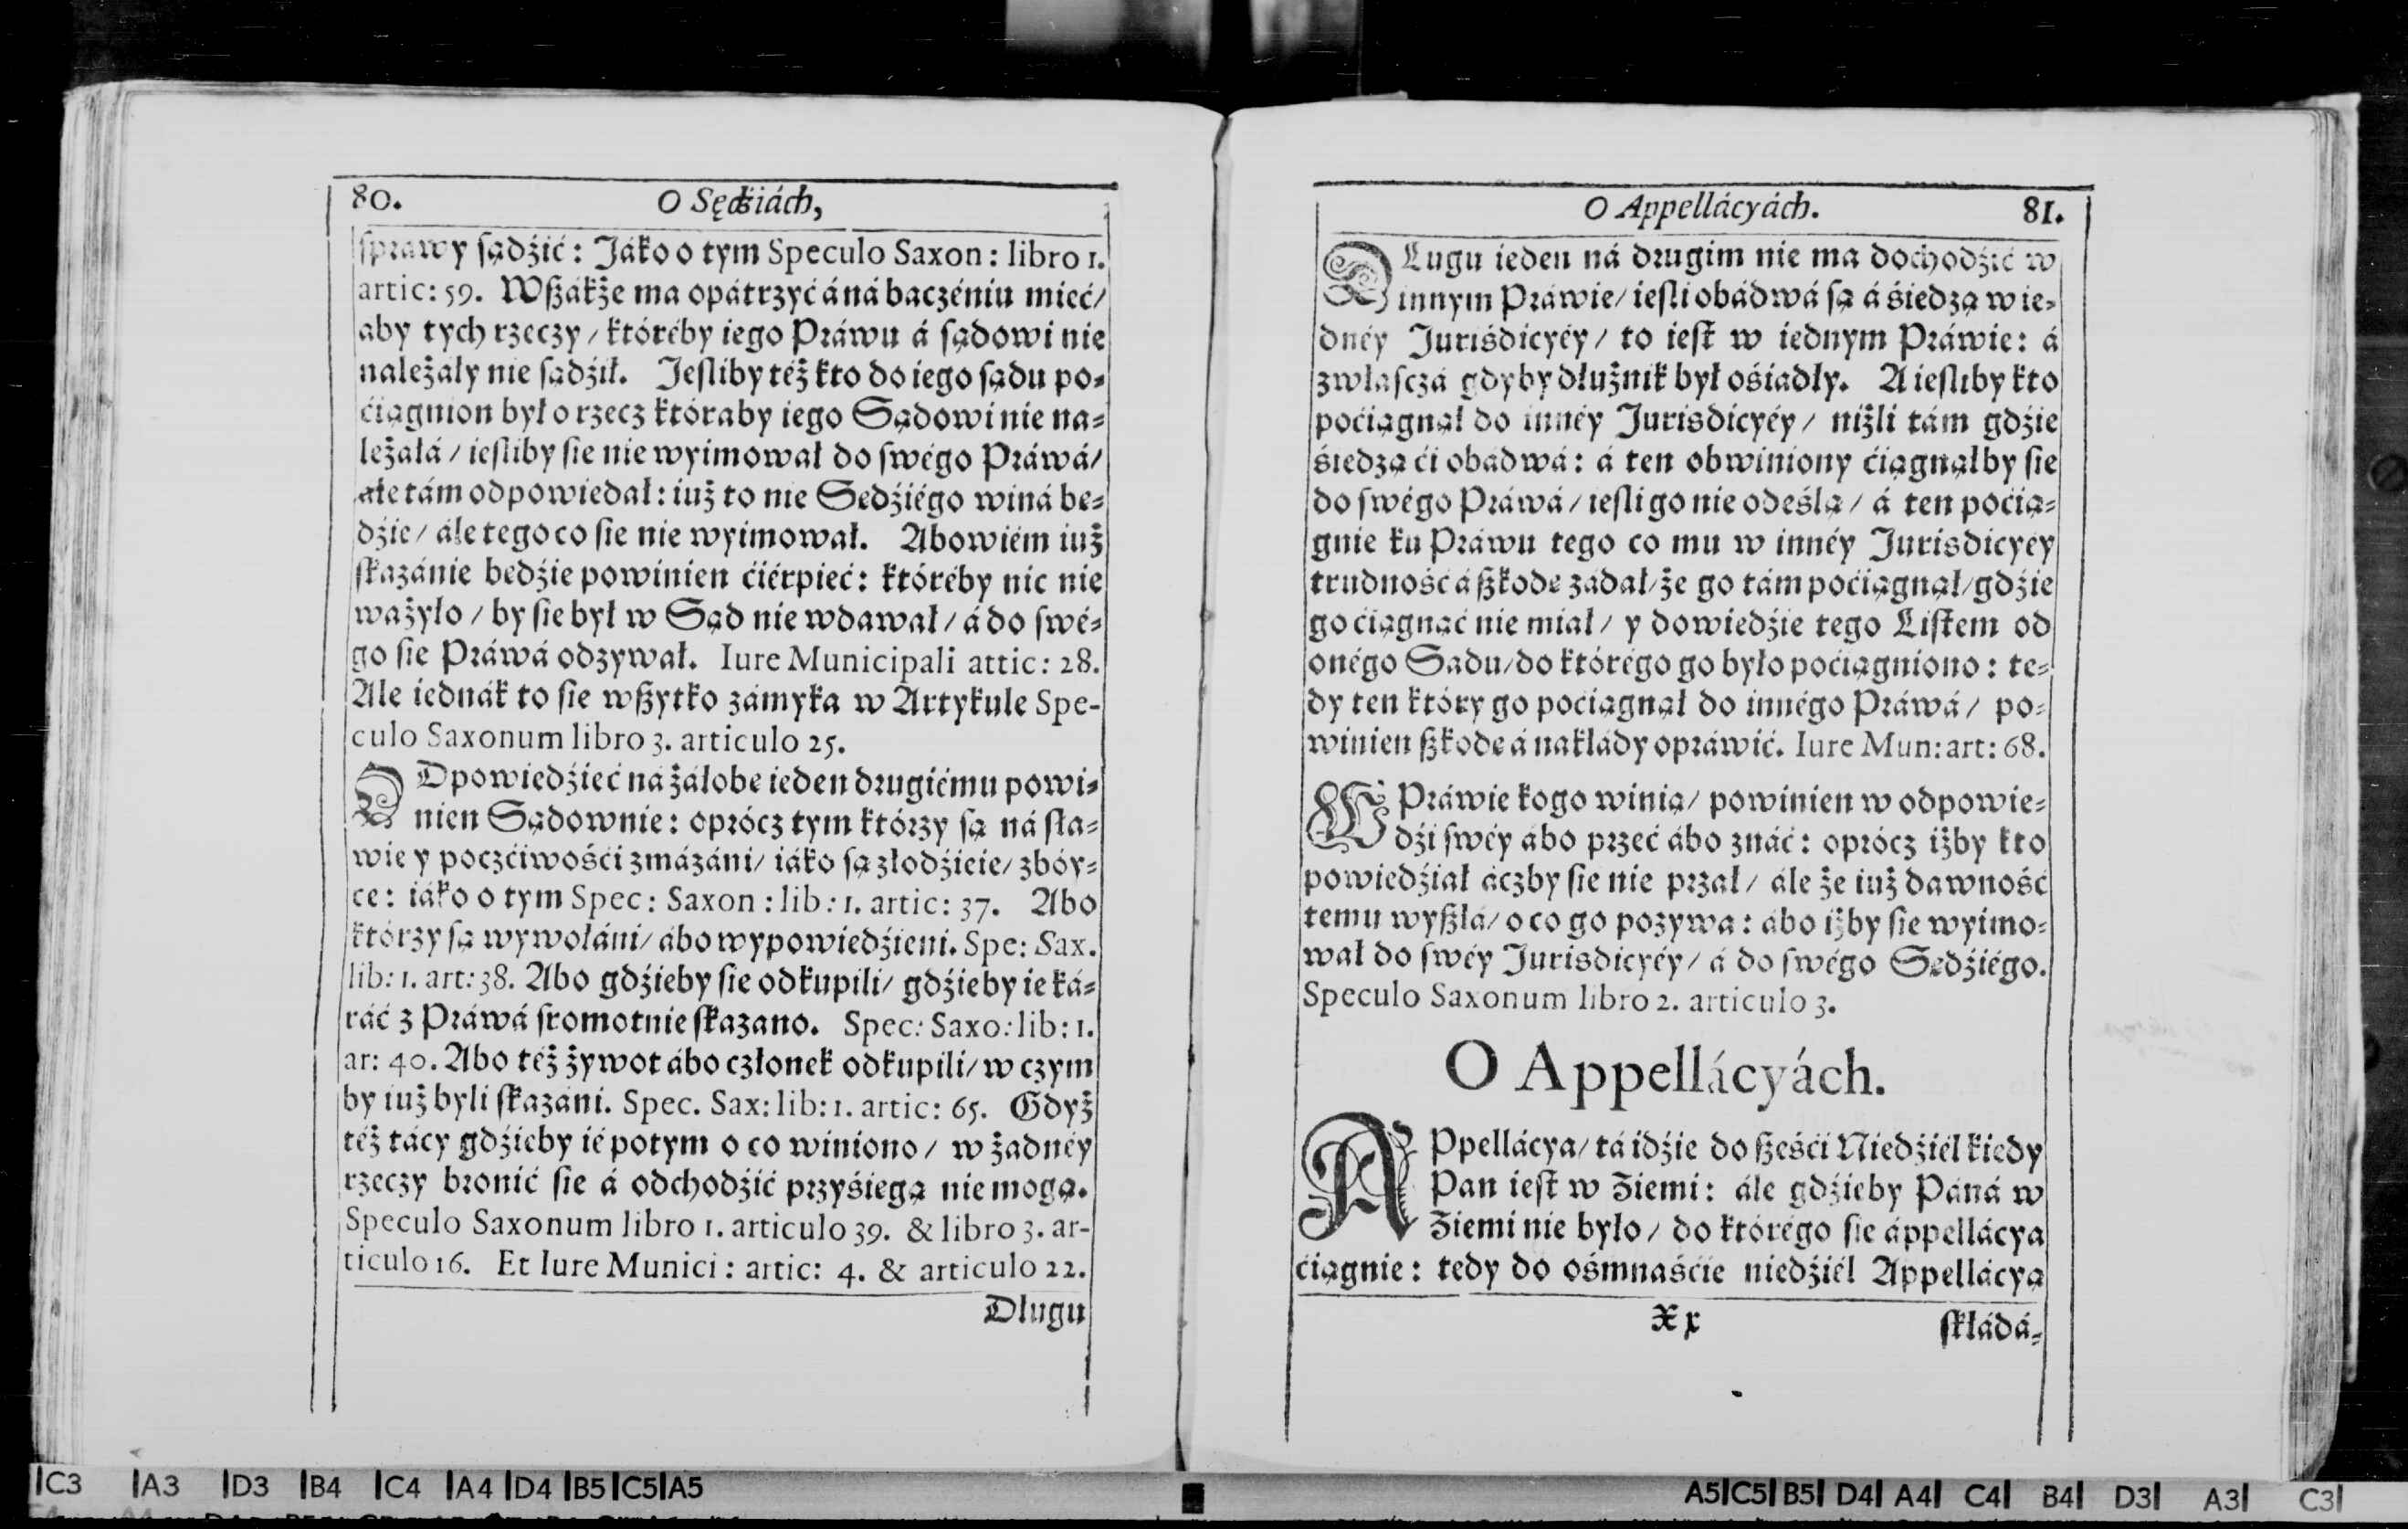 80. O Sędźiách,
ſpráwy ſądźić: Jáko o tym Speculo Saxon: libro 1.
artic: 59. Wßákże ma opátrzyć á ná baczéniu mieć/
aby tych rzeczy/ któréby iego Práwu á ſądowi nie
należáły nie ſądźił. Jeſliby téż kto do iego ſądu po-
ćiągnion był o rzecz któraby iego Sądowi nie na-
leżáłá/ ieſliby ſie nie wyimował do ſwégo Práwá/
ále tám odpowiedał: iuż to nie Sedźiégo winá be-
dźie/ ále tego co ſie nie wyimował. Abowiém iuż
ſkazánie bedźie powinien ćiérpieć: któréby nic nie
ważyło/ by ſie był w Sąd nie wdawał/ á do ſwé-
go ſie Práwá odzywał. Iure Municipali attic: 28.
Ale iednák to ſie wßytko zámyka w Artykule Spe-
culo Saxonum libro 3. articulo 25.
ODpowiedźieć ná żáłobe ieden drugiému powi-
nien Sądownie: oprócz tym którzy ſą ná ſła-
wie y poczćiwośći zmázáni/ iáko ſą złodźieie/ zbóy-
ce: iáko o tym Spec: Saxon: lib: 1. artic: 37. Abo
którzy ſą wywołáni/ ábo wypowiedźieni. Spe: Sax.
lib: 1. art: 38. Abo gdźieby ſie odkupili/ gdźieby ie ká-
ráć z Práwá ſromotnie ſkazano. Spec: Saxo: lib: 1.
ar: 40. Abo téż żywot ábo członek odkupili/ w czym
by iuż byli ſkazáni. Spec. Sax: lib: 1. artic: 65. Gdyż
téż tácy gdźieby ié potym o co winiono/ w żadnéy
rzeczy bronić ſie á odchodźić przyśiegą nie mogą.
Speculo Saxonum libro 1. articulo 39. & libro 3. ar-
ticulo 16. Et Iure Munici: artic: 4. & articulo 22.
Długu
O Appellácyách. 81.
DLugu ieden ná drugim nie ma dochodźić w
innym Práwie/ ieſli obádwá ſą á śiedzą w ie-
dnéy Jurisdicyéy/ to ieſt w iednym Práwie: á
zwłaſczá gdyby dłużnik był ośiádły. A ieſliby kto
poćiągnął do innéy Jurisdicyéy/ niżli tám gdźie
śiedzą ći obádwá: á ten obwiniony ćiągnąłby ſie
do ſwégo Práwá/ ieſli go nie odeślą/ á ten poćią-
gnie ku Práwu tego co mu w innéy Jurisdicyéy
trudność á ßkode zádał/ że go tám poćiągnął/ gdźie
go ćiągnąć nie miał/ y dowiedźie tego Liſtem od
onégo Sądu/ do którégo go było poćiągniono: te-
dy ten który go poćiągnął do innégo Práwá/ po-
winien ßkode á nakłády opráwić. Iure Mun: art: 68.
W Práwie kogo winią/ powinien w odpowie-
dźi ſwéy ábo przeć ábo znáć: oprócz iżby kto
powiedźiał áczby ſie nie przał/ ále że iuż dawność
temu wyßłá/ o co go pozywa: ábo iżby ſie wyimo-
wał do ſwéy Jurisdicyéy/ á do ſwégo Sedźiégo.
Speculo Saxonum libro 2. articulo 3.
O Appellácyách.
APpellácya/ tá idźie do ßeśći Niedźiél kiedy
Pan ieſt w Ziemi: ále gdźieby Páná w
Ziemi nie było/ do którégo ſie áppellácya
ćiągnie: tedy do ośmnaśćie niedźiél Appellácya
Xx ſkłádá-
C3 A3 D3 B4 C4 A4 D4 B5 C5 A5
A5 C5 B5 D4 A4 C4 B4 D3 A3 C3